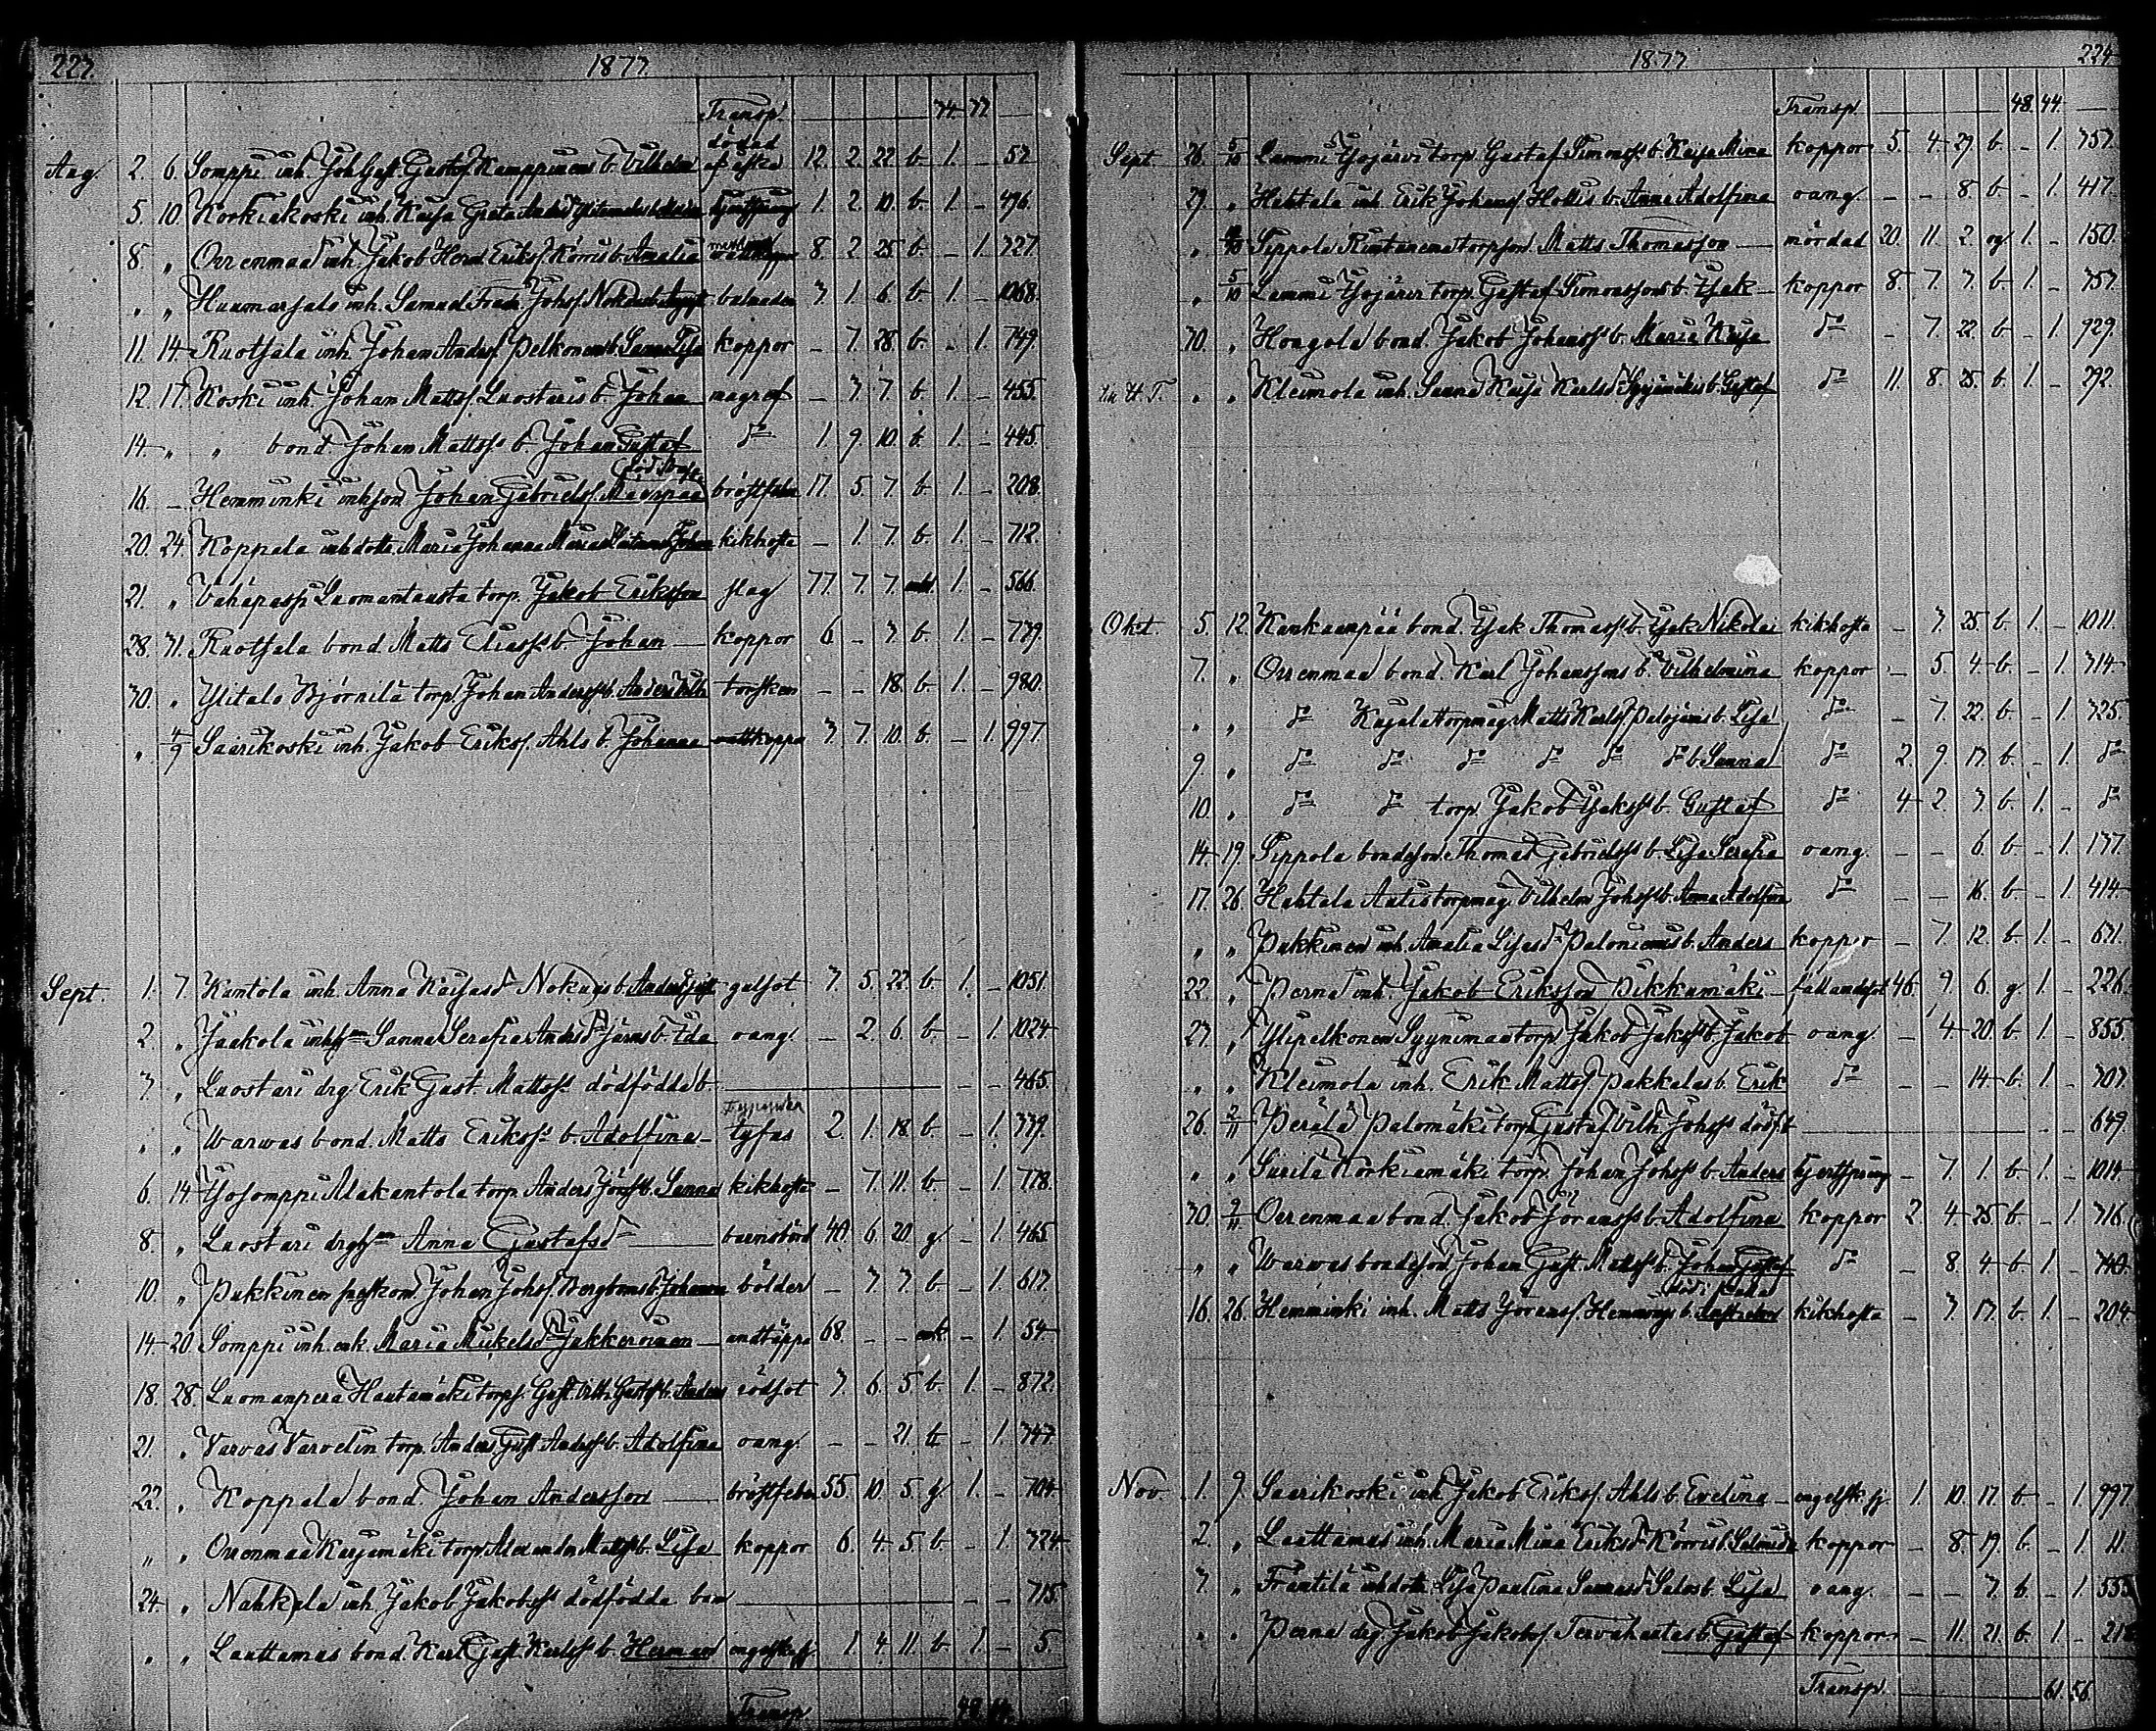 223. 1877.
Transp. 34. 33.
Aug. 2. 6. Somppi inh. Joh. Gust. Gustafs. Kamppinens b. Vilhelm dödad af åska 12. 2. 22. b. 1. – 53
5. 10. Korkiakoski inh. Kaisa Greta 1. 2. 10. b. 1. – 496.
8. „ Orrenmaa inh. Jakob Herm. Eriks. Körris b. Amalia 8. 2. 25. b. – 1. 327.
„ „ Haumarsalo inh. Samuel Johs. 3. 1. 6. b. 1. – 1068.
11. 14. Ruotsala inh. Johan Anders. Pelkonens b. Sanna Lisa koppor – 7. 28. b. – 1. 349.
12. 17. Koski inh. Johan Matts. Luostaris b. Johan magref – 3. 7. b. 1. – 455.
14. „ „ bond. Johan Mattss. b. Johan Gustaf do 1. 9. 10. b. 1. – 445.
16. – Hemminki inhson Johan Gabriels. bröstfeber 17. 5. 7. b. 1. – 208.
20. 24. Koppala inhdotts. Maria Johanna kikhosta – 1. 7. b. 1. – 712.
21. „ Vähäpassi Luomantausta torp. Jakob Eriksson slag 77. 7. 7. enkl. 1. – 566.
28. 31. Ruotsala bond. Matts Eliass. b. Johan koppor 6 – 3. b. 1. – 339.
30. „ Ylitalo Björnilä torp. Johan Anderss. b. Anders Vilh. torsken – – 18. b. 1. – 980.
„ 4/9 Saarikoski inh. Jakob Eriks. Ahls b. Johanna vattkoppor 3. 7. 10. b. – 1. 997.
Sept. 1. 7. Kantola inh. Anna Kaisasdr Nokuas b. Anders Gust. gulsot 7. 5. 22. b. 1. – 1051.
2. „ Jaakola inhhn Sanna Serafia Andersdr b. Ida oang. – 2. 6. b. – 1. 1024.
3. „ Luostari drg. Erik Gust. Mattss. dödfödda b. – – 465.
„ „ Warwas bond. Matts Erikss. b. Adolfina tyfus 2. 1. 18. b. – 1. 339.
6. 14. Yosomppi Alakantola torp. Anders Jöns. b. Sanna kikhosta – 7. 11. b. – 1. 778.
8. „ Luostari drghn Anna Gustafsdr barnsbörd 40. 6. 20. g. – 1. 465.
10. „ Pukkinen Johan Johs. Bergboms b. Johanna bölder – 3. 7. b. – 1. 617.
14. 20. Somppi inh. enk. Maria Mickelsdr Jukkeroinen andtäppa 68. – – enk. – 1. 54.
18. 28. Luomanperä Hautamäki torp. Gust. Vilh. Gustafs. b. Anders rödsot 3. 6. 5. b. 1. – 872.
21. „ Varvas Varvelin torp. Anders Gust. Anderss. b. Adolfina oang. – – 21. b. – 1. 347.
22. „ Koppala bond. Johan Andersson bröstfeber 55. 10. 5. g. 1. – 704.
„ „ Orrenmaa Karjamäki torp. Alexander Matts. b. Lisa koppor 6. 4. 5. b. – 1. 324.
24. „ Nahkala inh. Jakob Jakobss. dödfödda barn – – 715.
„ „ Laattamas bond. Karl Gust. Karlss. b. Herman engelska sj. 1. 4. 11. b. 1. – 5.
Transp. 48. 44.
1877. 224.
Transp. 48. 44.
Sept. 26. 5/10 Lammi Yojärvi torp. Gustaf Simonss. b. Kaisa Mina koppor 5. 4. 27. b. – 1. 757.
29. „ Hahtala inh. Erik Johans. Hollis b. Anna Adolfina oang. – – 8. b. – 1. 417.
„ Sippola Rintanema torpson Matts Thomasson mördad 20. 11. 2. og. 1. – 150.
„ 5/10 Lammi Yojärvi torp. Gustaf Simonssons b. Isak koppor 8. 7. 7. b. 1. – 757.
30. „ Hongola bond. Jakob Johanss. b. Maria Kaisa do – 7. 22. b. – 1. 929.
„ „ Kleimola inh. Sanna Kaisa Karlsdr b. Gustaf do 11. 8. 25. b. 1. – 292.
Okt. 5. 12. Kankaanpää bond. Isak Thomass. b. Isak Nikolai kikhosta – 3. 25. b. 1. – 1011.
7. „ Orrenmaa bond. Karl Johanssons b. Vilhelmina koppor – 5. 4. b. – 1. 314.
„ „ do Kujala torpmag Matts Karls. Palojärvis b. Lisa do – 7. 22. b. – 1. 325.
9. „ do do do do do do b. Sanna do 2. 9. 17. b. – 1. do
10. „ do do torp. Jakob Isakss. b. Gustaf do 4. 2. 3. b. 1. – do
14. 19. Sippola bondeson Thomas Gabrielss. b. Lisa Serafia oang. – – 6. b. – 1. 137.
17. 26. Hahtala Antis torpmag Vilhelm Johss. b. Anna Adolfina do – – 16. b. – 1. 414.
„ „ Pukkinen inh. Amalia Lisasdr Paloniemis b. Anders koppor – 7. 12. b. 1. – 631.
22. „ Perna inh. Jakob Eriksson Pikkumäki fallandesot 46. 9. 6. g. 1. – 226.
23. „ Ylipelkonen Syynimaa torp. Jakob Jakobss. b. Jakob oang. – 4. 20. b. 1. – 855.
„ „ Kleimola inh. Erik Matts. Pakkalas b. Erik do – – 14. b. 1. – 303.
26. 2/11 Perälä Palomäki torp. Gustaf Vilh. Johss. dödf. b. – – 649.
„ „ Surila Korkiamäki torp. Johan Johss. b. Anders hjertsprång – 7. 1. b. 1. – 1014.
30. 9/11 Orrenmaa bond. Jakob Göranss. b. Adolfina koppor 2. 4. 25. b. – 1. 316.
„ „ Warwas bondeson Johan Gust. Mattss. b. Johan Gustaf do – 8. 4. b. 1. – 340.
16. 26. Hemminki inh. Matts Görans. Hemmings b. kikhosta – 3. 17. b. 1. – 204.
Nov. 1. 9. Saarikoski inh. Jakob Eriks. Ahls b. Evelina engelsk. sj. 1. 10. 17. b. – 1. 997.
2. „ Laattamas inh. Maria Mina Eriksdr Körris b. koppor – 8. 19. b. – 1. 11.
3. „ Fräntilä inhdotts. Lisa Paulina Sannasdr Salos b. Lisa oang. – – 3. b. – 1. 555.
„ „ Perna drg. Jakob Jakobs. Tervahautas b. Gustaf koppor – 11. 21. b. 1. –
Transp. 61. 56.